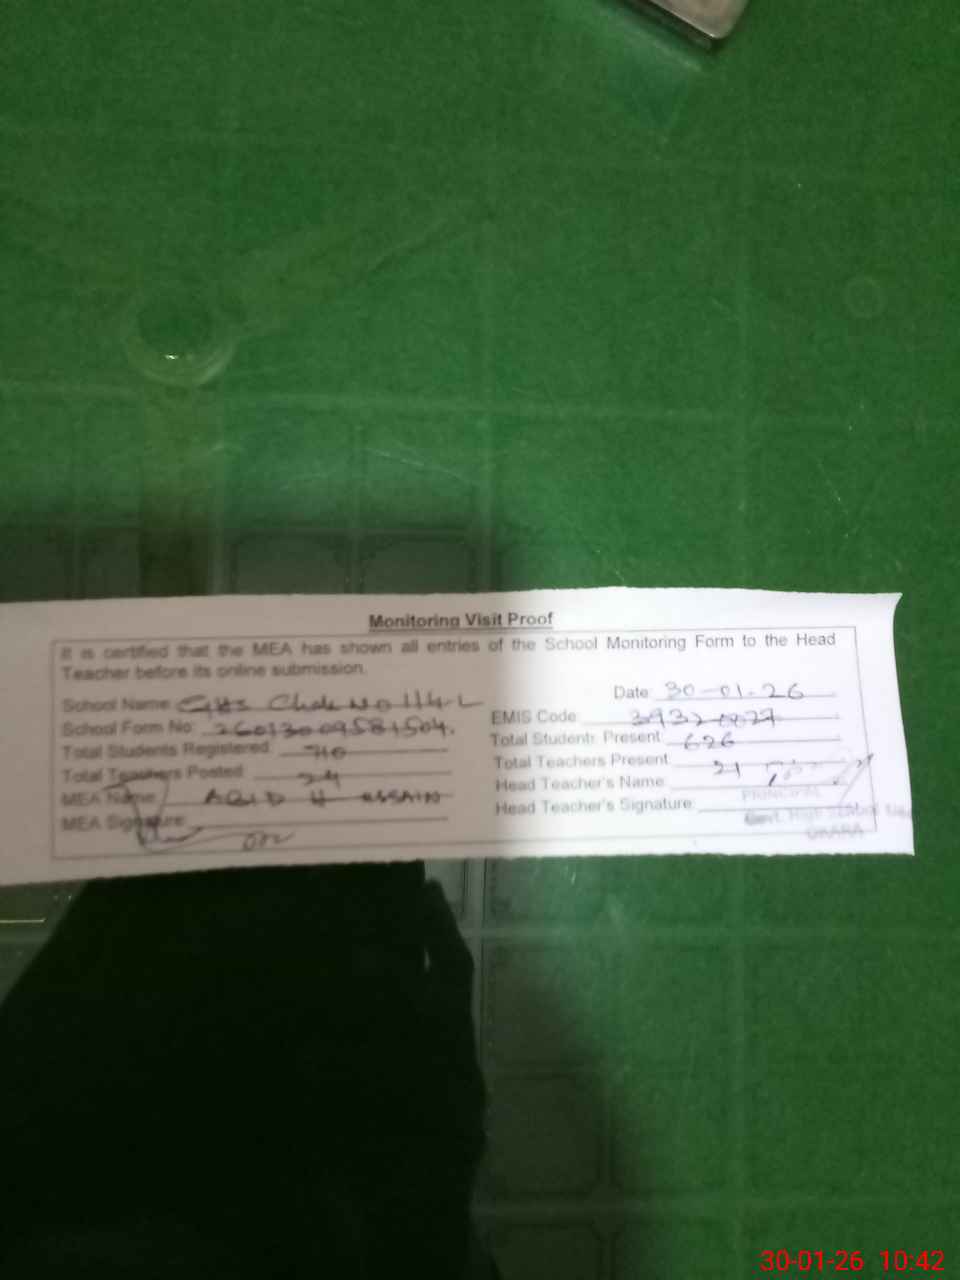 Monitoring Visit Proof
It is certified that the MEA has shown all entries of the School Monitoring Form to the Head
Teacher before its online submission.
Date: 30-01-26
School Name: GHS Chak No 114-L
EMIS Code: 39320027
School Form No: 26013009581504
Total Students Present: 626
Total Students Registered: 710
Total Teachers Present: 21
Total Teachers Posted: 24
Head Teacher's Name:
MEA Name: ABID HUSSAIN
PRINCIPAL
Head Teacher's Signature:
Govt. High School
MEA Signature:
OKARA
30-01-26 10:42